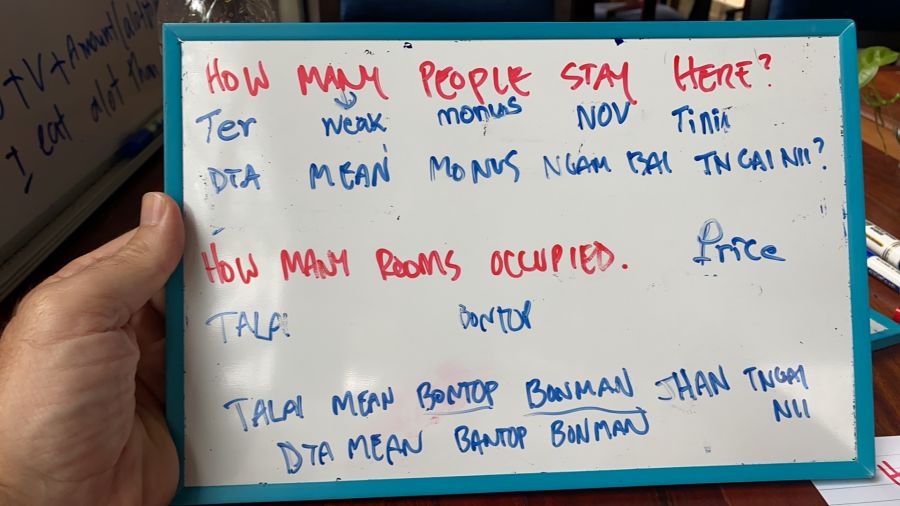 + V + Amount
I eat alot than
HOW MANY PEOPLE STAY HERE?
Ter weak monus NOV Tinii
DTA MEAN MONUS NGAM BAI TNGAI NII?
HOW MANY ROOMS OCCUPIED. Price
TALAI BONTOP
TALAI MEAN BONTOP BONMAN JHAN TNGAI
NII
DTA MEAN BANTOP BONMAN